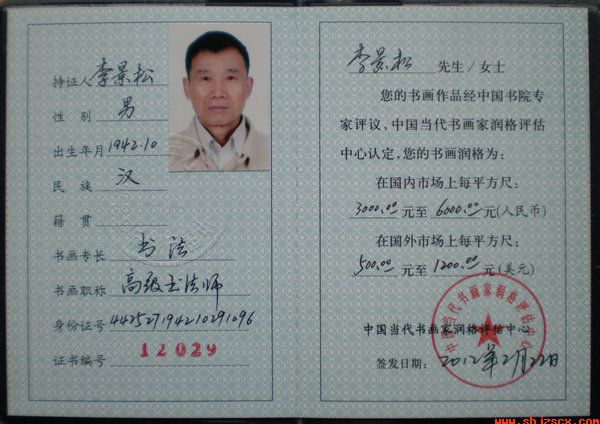 持证人 李景松
性别 男
出生年月 1942.10
民族 汉
籍贯
书画专长 书法
书画职称 高级书法师
身份证号 442527194210291096
证书编号 12029
李景松 先生/女士
您的书画作品经中国书院专
家评议,中国当代书画家润格评估
中心认定,您的书画润格为:
在国内市场上每平方尺:
3000.00 元至 6000.00 元(人民币)
在国外市场上每平方尺:
500.00 元至 1200.00 元(美元)
中国当代书画家润格评估中心
中国当代书画家润格评估中心
签发日期: 2012年2月22日
www.shjzscx.com